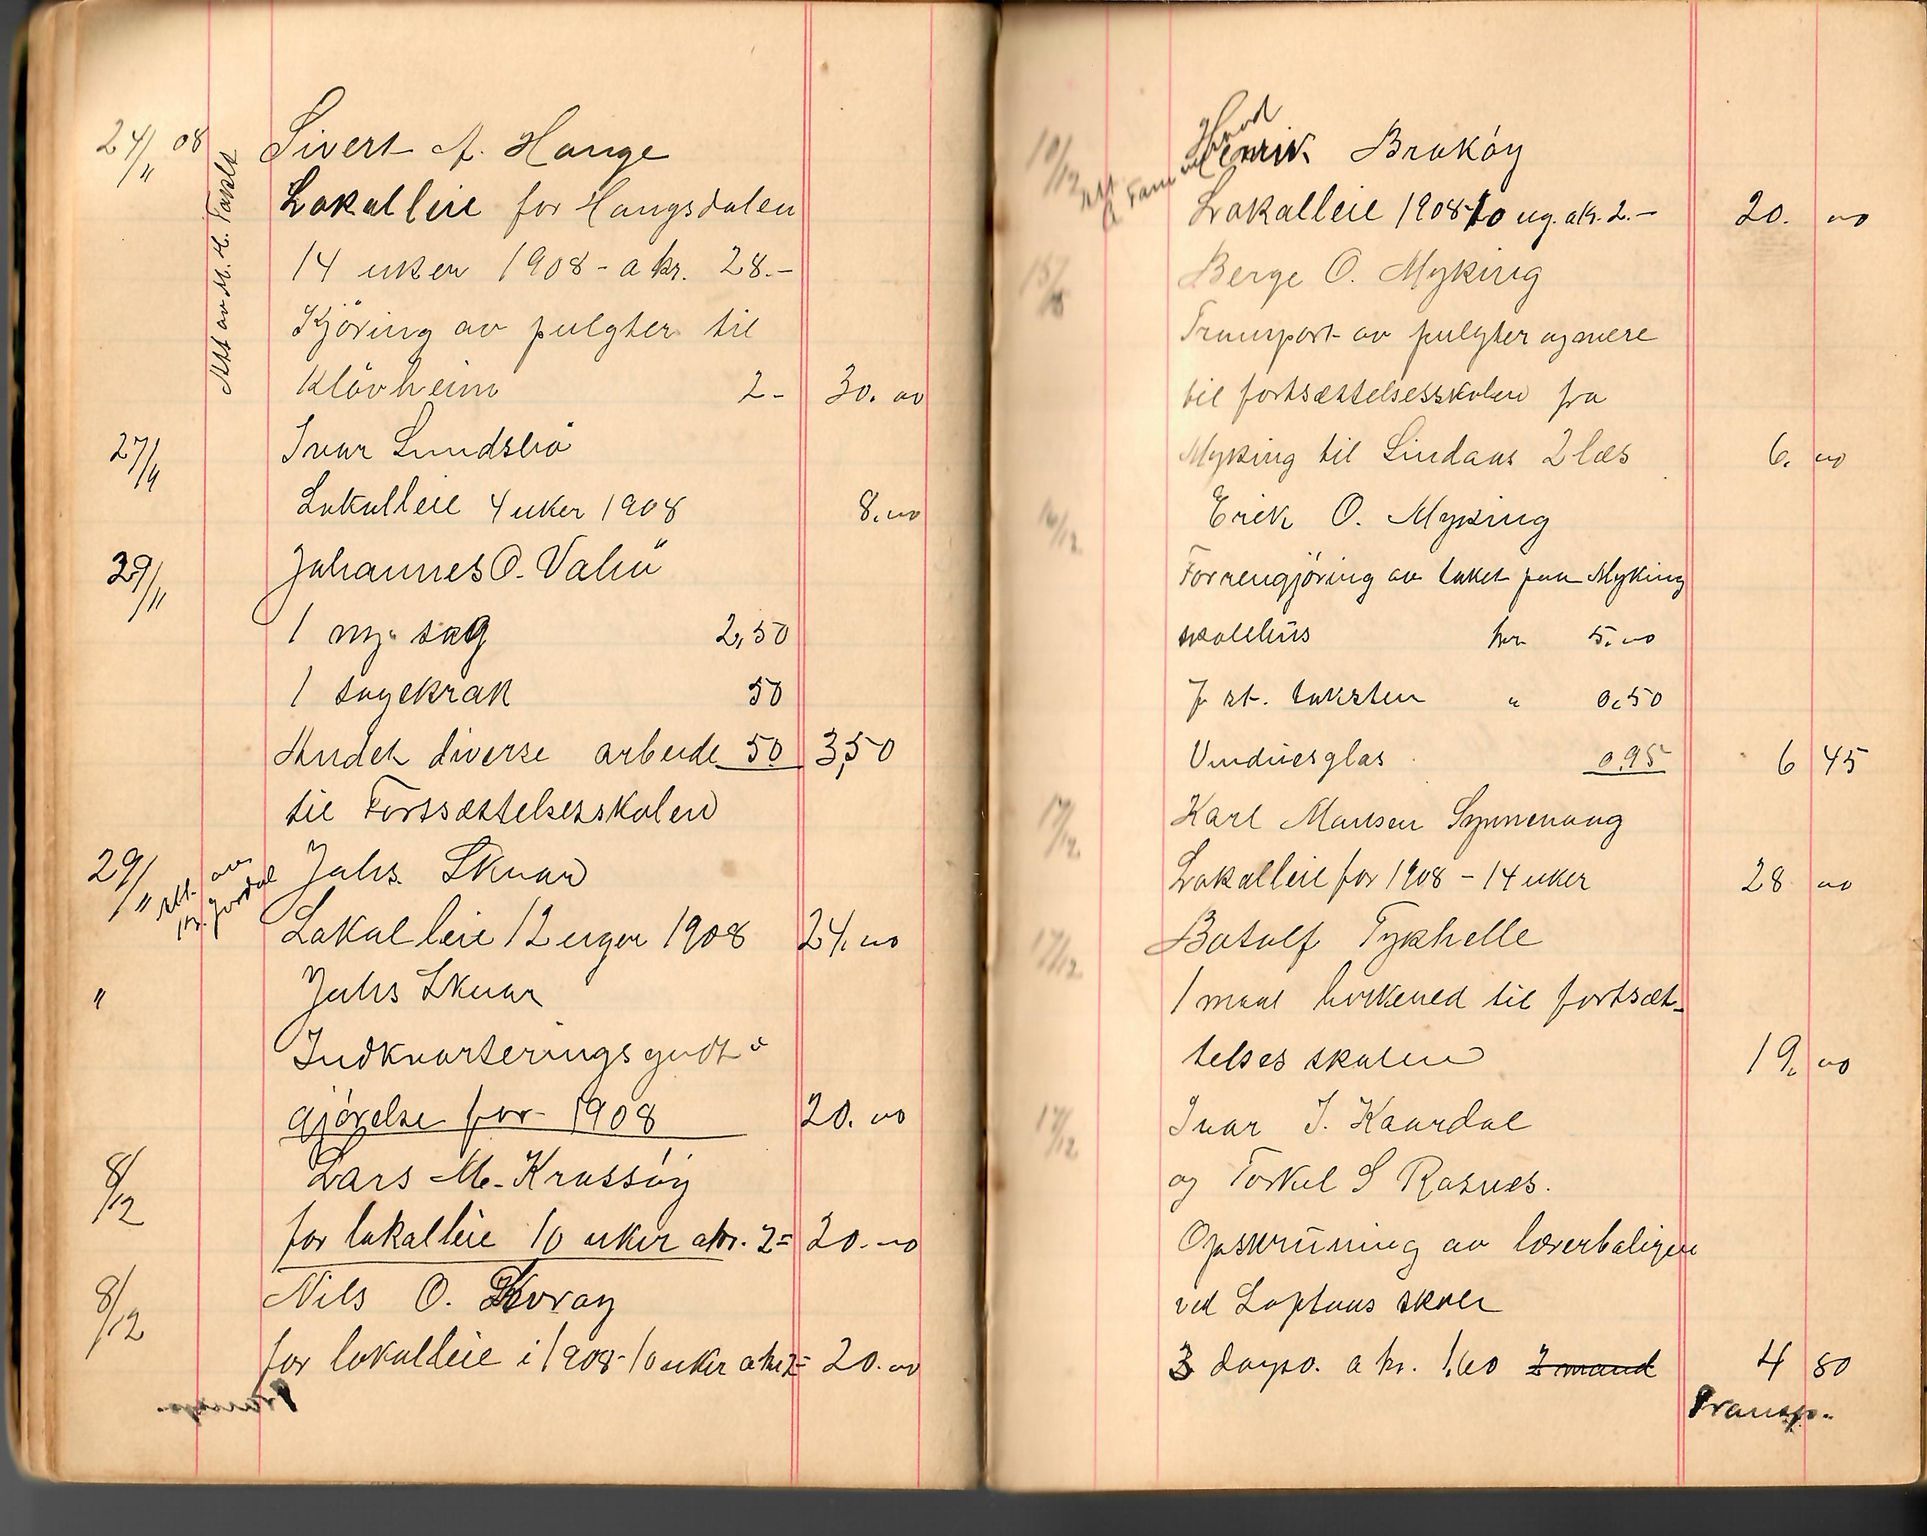 24/11 08 Sivert A. Hauge
Lokalleie for Haugsdalen
14 uker 1908 - a kr. 28.-
Kjöring av pulgter til
Klövheim 2- 30.00
Att av M. H.
27/11 Ivar Lundsbö
Lokalleie 4 uker 1908 8.00
29/11 Johannes O. Valsö
1 ny sag 2,50
1 sagekrak 50
Andet diverse arbeide 50 3,50
til Fortsættelsesskolen
29/11 Johs. Skuar
Att. av
Lokalleie 12 uger 1908 24.00
" Johs Skuar
Indkvarteringsgodt-
gjörelse for 1908 20.00
8/12 Lars M. Krossöy
for lokalleie 10 uker a kr. 2= 20.00
8/12 Nils O. Kvray
for lokalleie i 1908-10 uker a kr 2= 20.00
10/12 Henrik Braköy
Lokalleie 1908 10 ug. a kr. 2.- 20. 00
15/12 Berge O. Myking
Transport av pulgter og mere
til fortsættelsesskolen fra
Myking til Lindaas 2 læs 6. 00
16/12 Erik O. Myking
For rengjöring av taket paa Myking
skolehus kr 5.00
7 st. taksten " 0,50
Vinduesglas 0,95 6 45
17/12 Karl Monsen Synnevaag
Lokalleie for 1908 - 14 uker 28 00
17/12 Botolf Tykhelle
1 maal birkeved til fortsæt-
telses skolen 19. 00
17/12 Ivar I. Kaardal
og Torkel S Rosnes.
Opskruining av lærerboligen
ved Loptaas skole
3 dagsv. a kr. 1.60 2 mand 4 80
Transp.